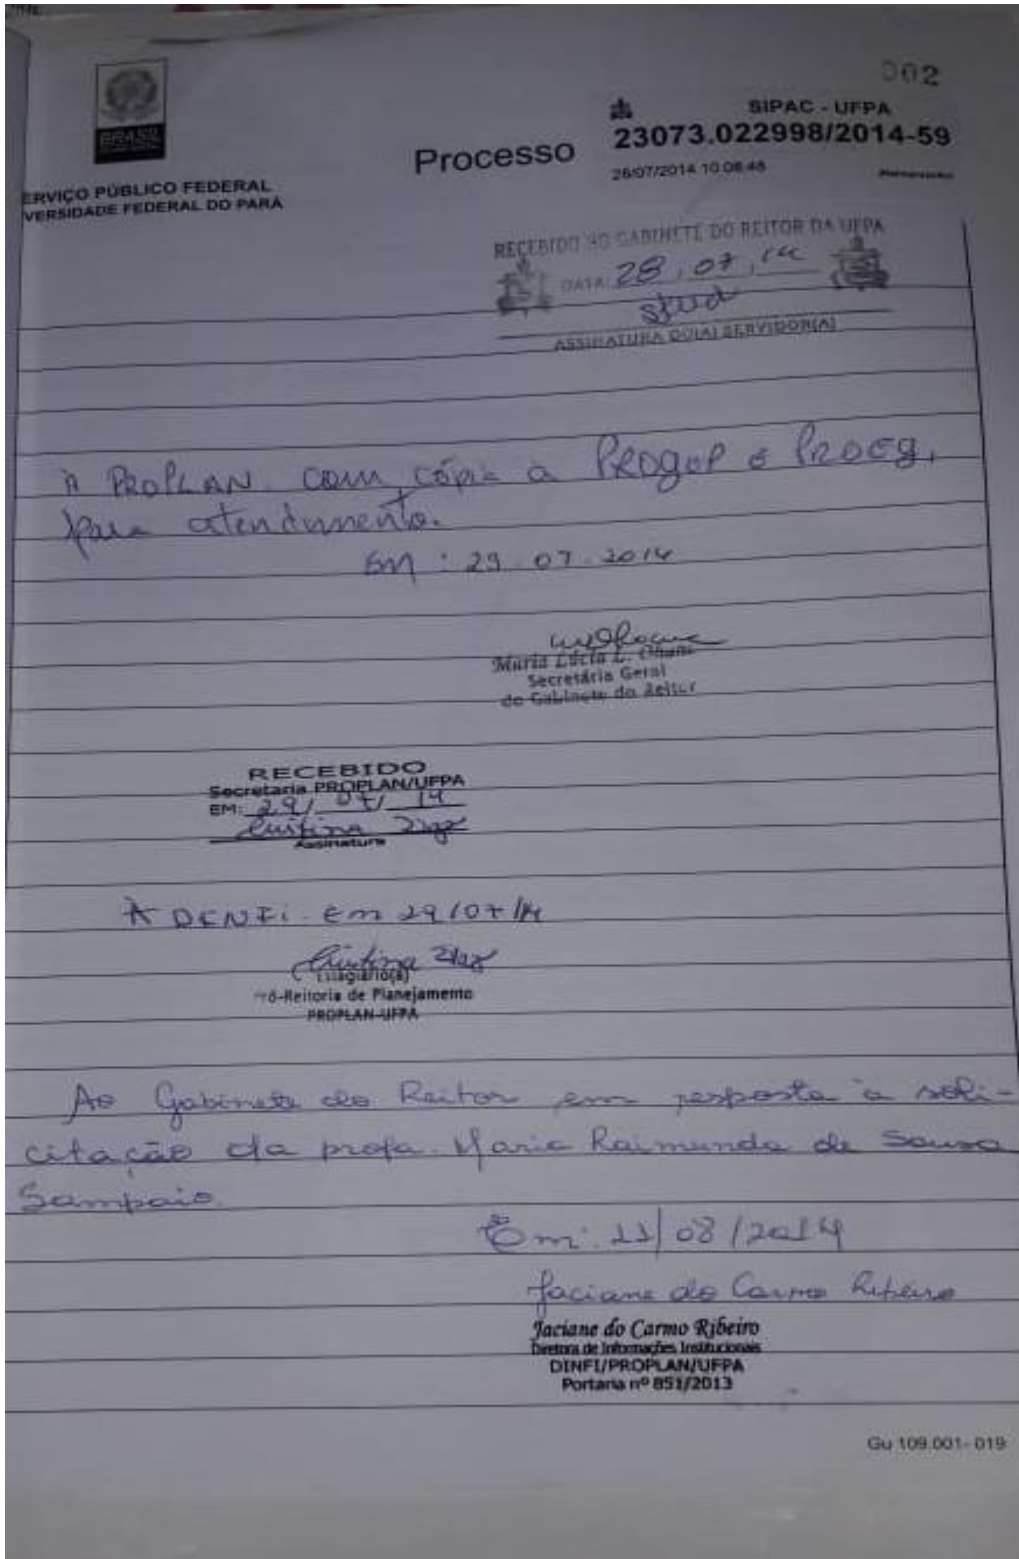 002
BRASIL
SIPAC - UFPA
Processo
23073.022998/2014-59
28/07/2014 10:08:48
ERVIÇO PÚBLICO FEDERAL
VERSIDADE FEDERAL DO PARÁ
RECEBIDO NO GABINETE DO REITOR DA UFPA
DATA: 28, 07, 14
ASSINATURA DO(A) SERVIDOR(A)
À PROPLAN com cópia a PROGEP e PROEG,
para atendimento.
EM: 29.07.2014
Maria Lúcia L.
Secretária Geral
do Gabinete do Reitor
RECEBIDO
Secretaria PROPLAN/UFPA
EM: 29/ 07/ 14
Cristina
Assinatura
À DINFI. Em 29/07/14
Cristina
Estagiário(a)
ró-Reitoria de Planejamento
PROPLAN-UFPA
Ao Gabinete do Reitor em resposta à soli-
citação da profa. Maria Raimunda de Sousa
Sampaio.
Em: 11/08/2014
Jaciane do Carmo Ribeiro
Jaciane do Carmo Ribeiro
Diretora de Informações Institucionais
DINFI/PROPLAN/UFPA
Portaria nº 851/2013
Gu 109.001- 019